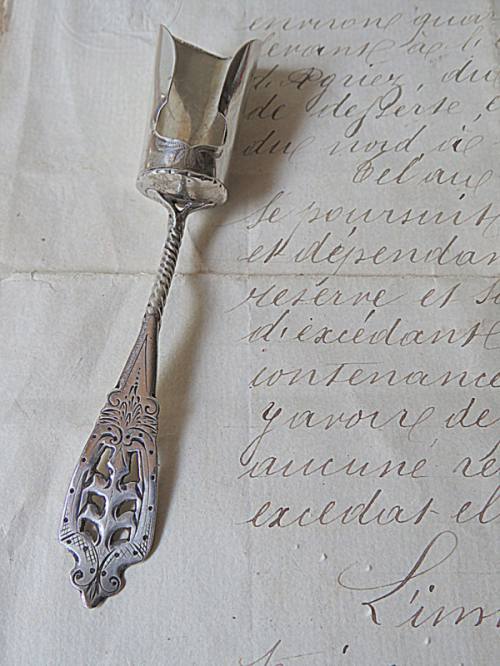 environ qua
levant à l'
d. Agriez, du
de desserte,
du nord à
Tel au
se poursuit
et dépendan
réserve et s
d'excédant
contenance
y avoir de
aucune ré
excédat el
L'imm